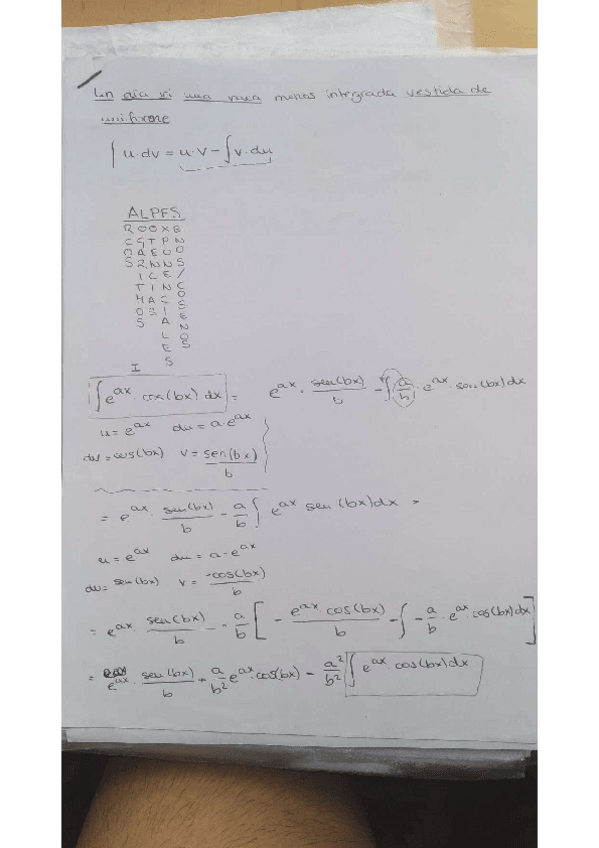 Un día vi una vaca menos integrada vestida de
uniforme
∫ u·dv = u·v - ∫ v·du
ALPES
I
∫ e^ax · cos(bx) dx = e^ax · sen(bx)/b - ∫ a/b · e^ax · sen(bx) dx
u = e^ax du = a·e^ax
dv = cos(bx) v = sen(bx)/b
= e^ax · sen(bx)/b - a/b ∫ e^ax sen(bx)dx =
u = e^ax du = a·e^ax
dv = sen(bx) v = -cos(bx)/b
= e^ax · sen(bx)/b - a/b [ - e^ax cos(bx)/b - ∫ - a/b · e^ax · cos(bx)dx ]
= e^ax · sen(bx)/b + a/b² e^ax · cos(bx) - a²/b² ∫ e^ax · cos(bx)dx